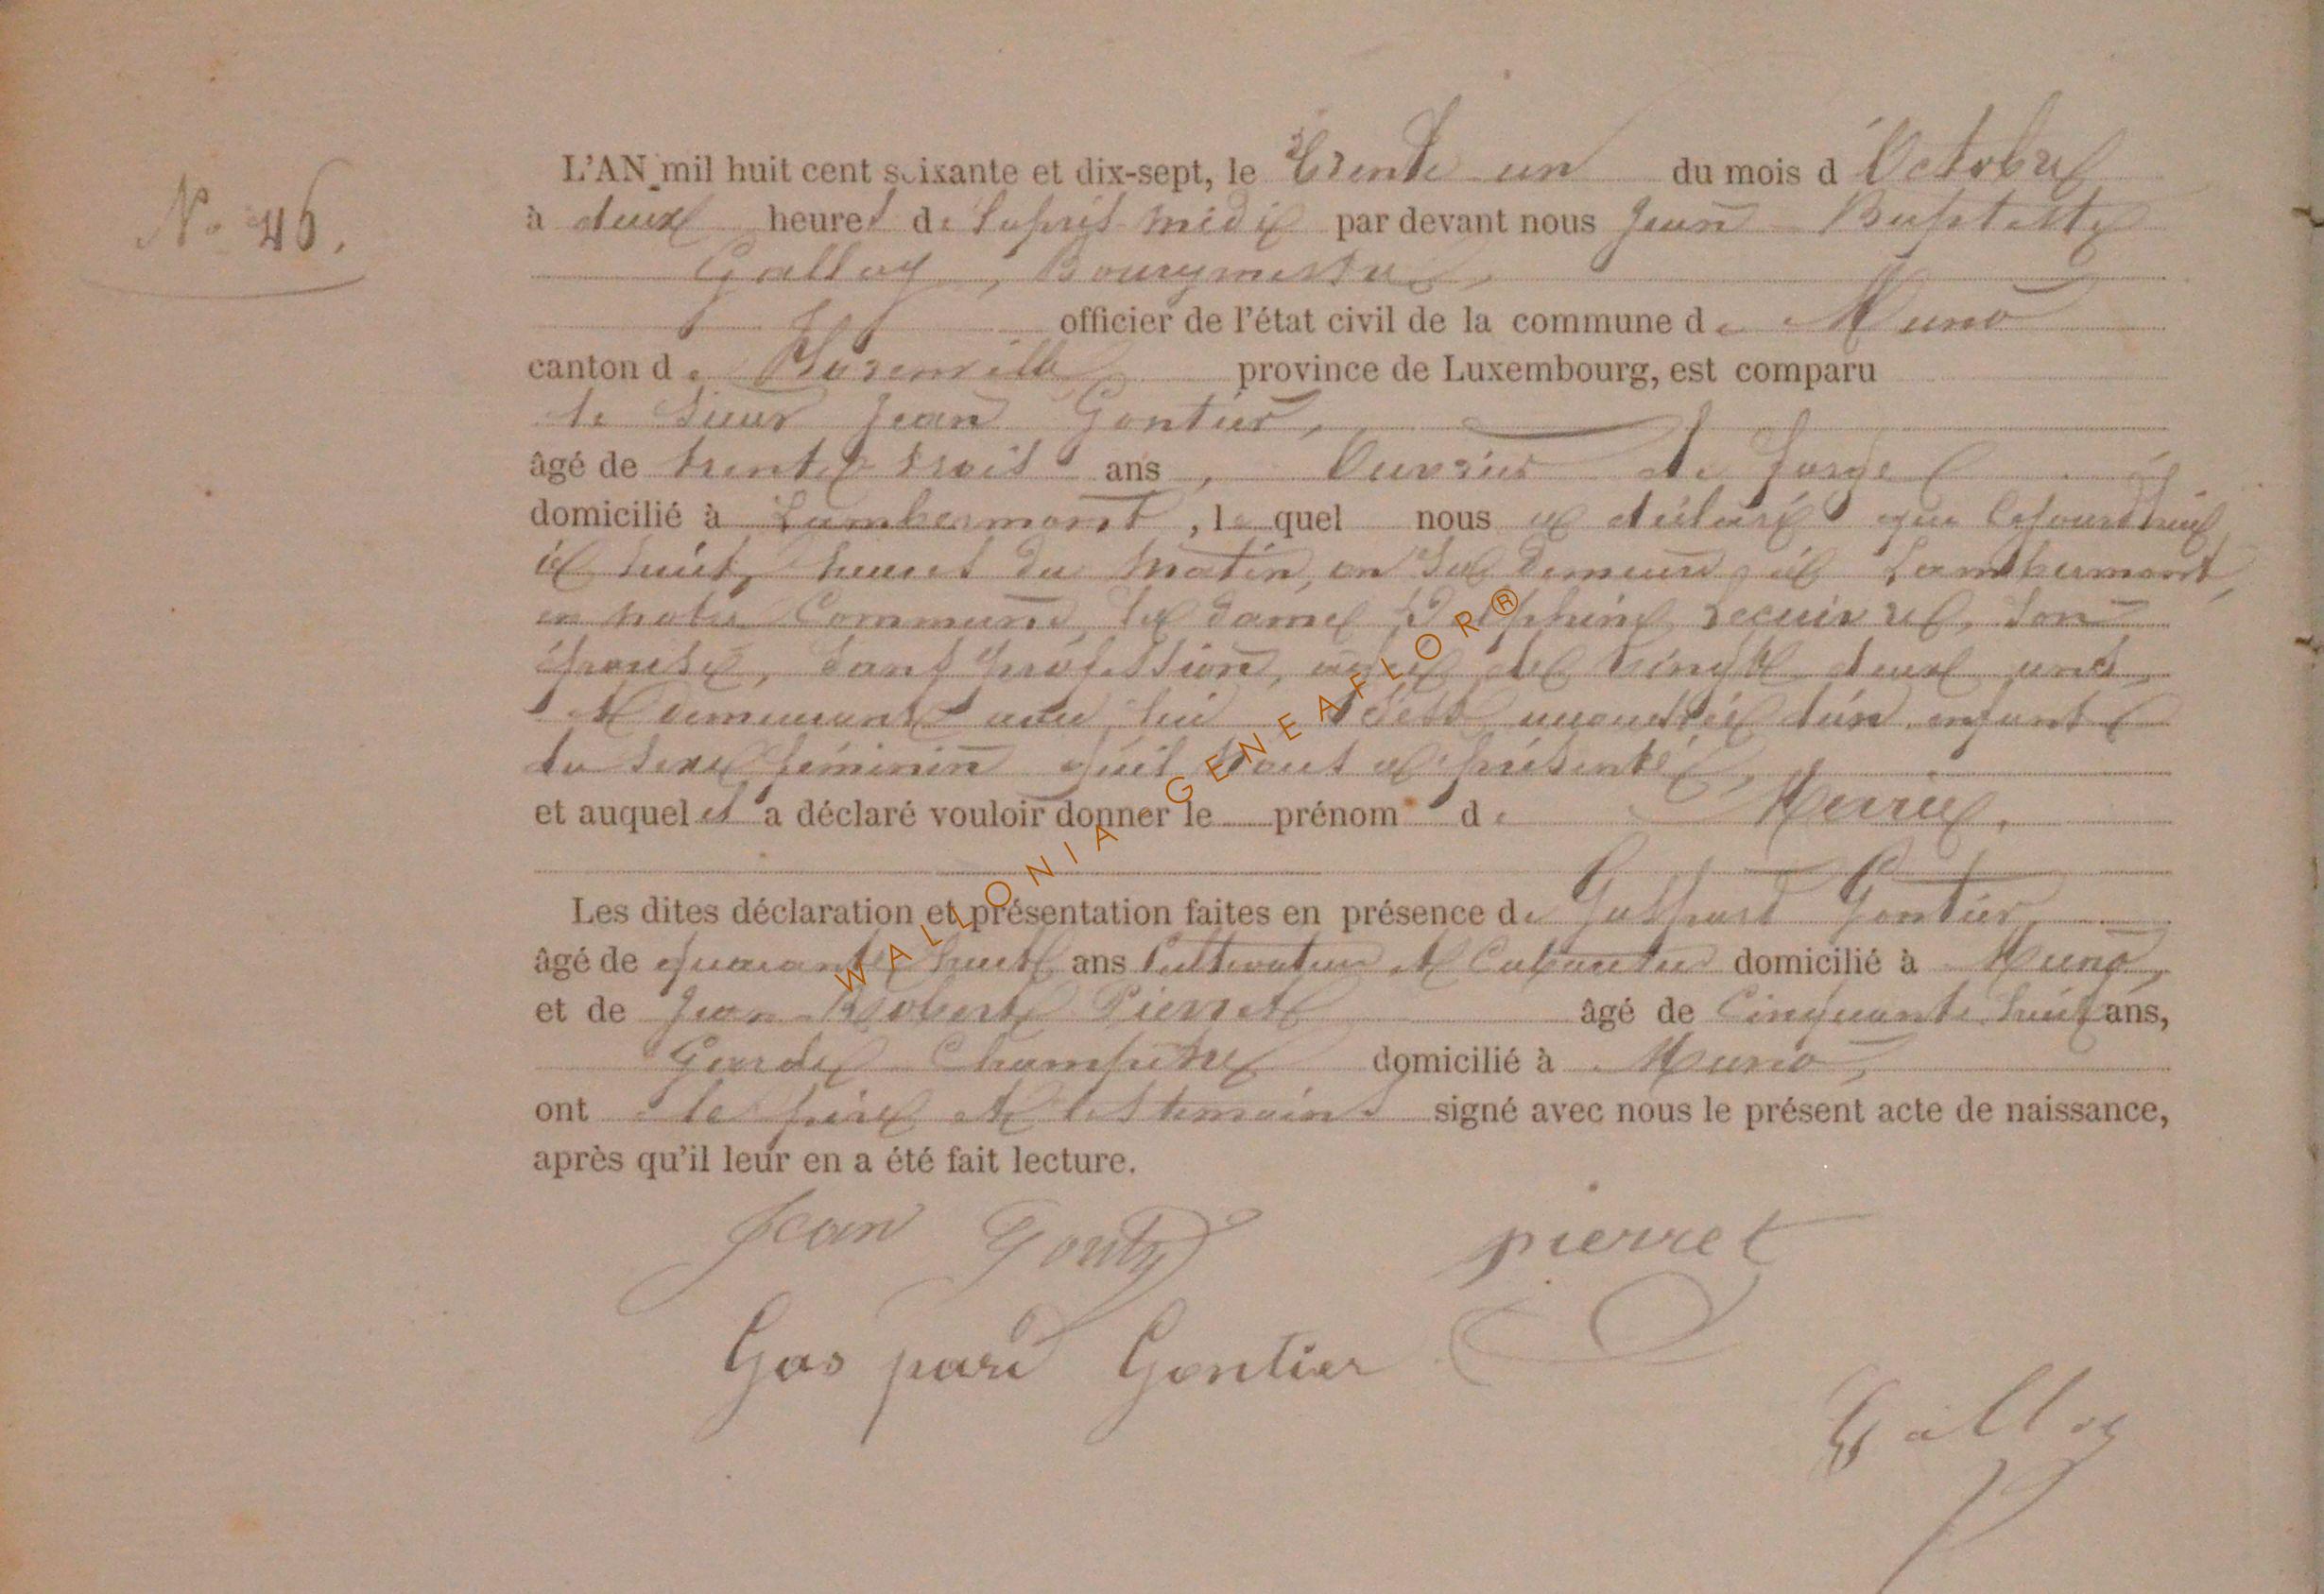 N° 46.
L'AN mil huit cent soixante et dix-sept, le trente un du mois d'Octobre
à deux heures de l'après midi par devant nous Jean Baptiste
Galloy, Bourgmestre,
officier de l'état civil de la commune de Muno
canton de Florenville province de Luxembourg, est comparu
le sieur Jean Gontier,
âgé de trente trois ans, Ouvrier de forge
domicilié à Lambermont, lequel nous a déclaré que cejourd'hui
à huit heures du matin, en sa demeure à Lambermont,
en notre Commune, la dame son
épouse, sans profession, âgée de vingt deux ans,
demeurant avec lui s'est accouchée d'un enfant
du sexe féminin qu'il nous a présenté,
et auquel il a déclaré vouloir donner le prénom de Marie.
Les dites déclaration et présentation faites en présence de Gaspard Gontier,
âgé de quarante huit ans Cultivateur et Cabaretier domicilié à Muno,
et de Jean Robert Pierret âgé de Cinquante huit ans,
Garde Champêtre domicilié à Muno,
ont le père et les témoins signé avec nous le présent acte de naissance,
après qu'il leur en a été fait lecture.
Jean Gonty
pierret
Gaspard Gontier
Galloy
WALLONIA GENEAFLOR®